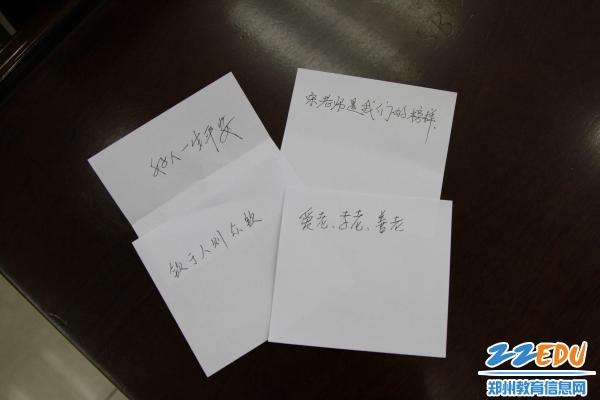 好人一生平安
宋老师是我们的榜样
敬于人则众敬
爱老、孝老、善老
SB
ZZEDU
郑州教育信息网